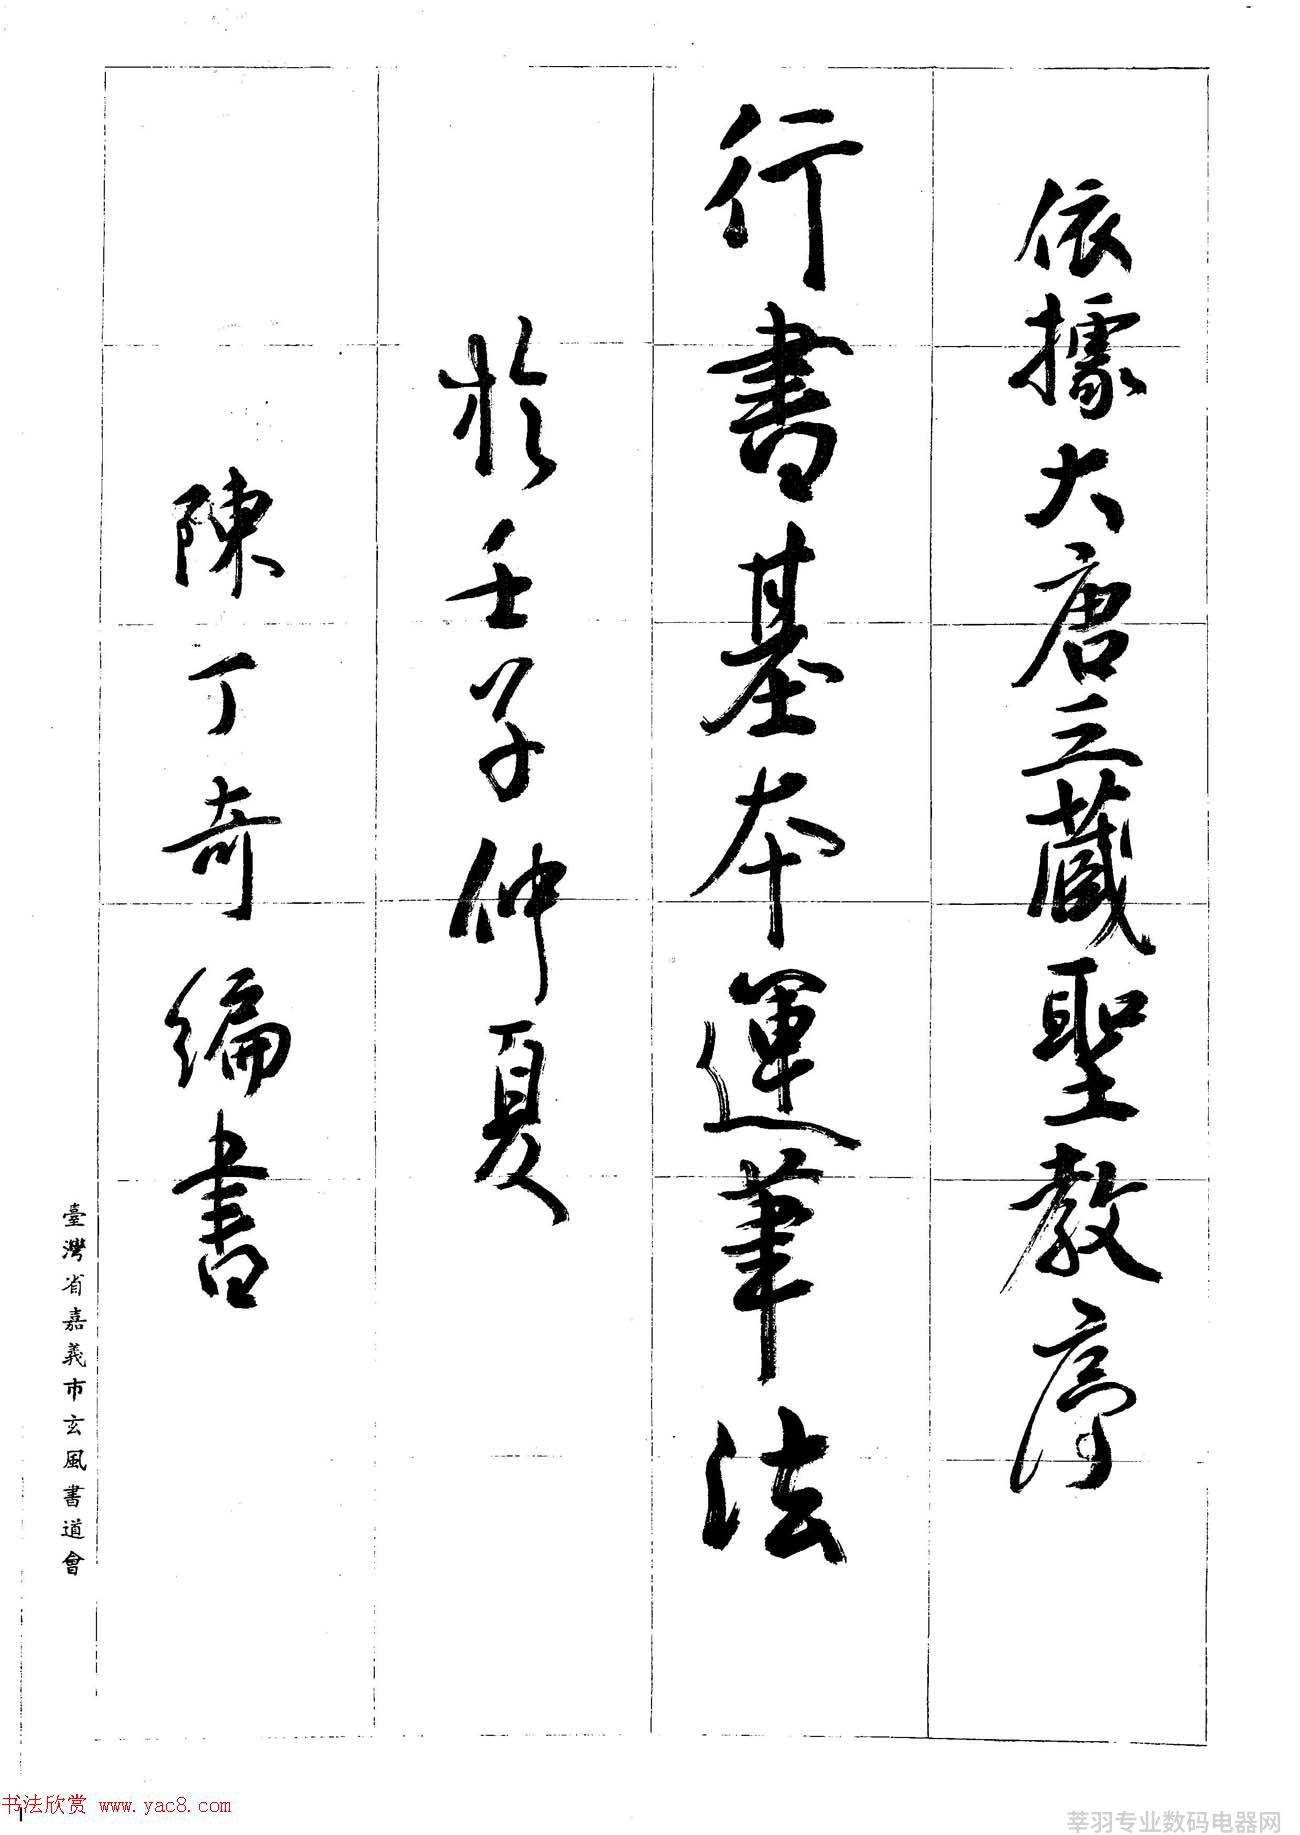 依據大唐三藏聖教序
行書基本運筆法
於壬子仲夏
陳丁奇編書
臺灣省嘉義市玄風書道會
书法欣赏 www.yac8.com
莘羽专业数码电器网